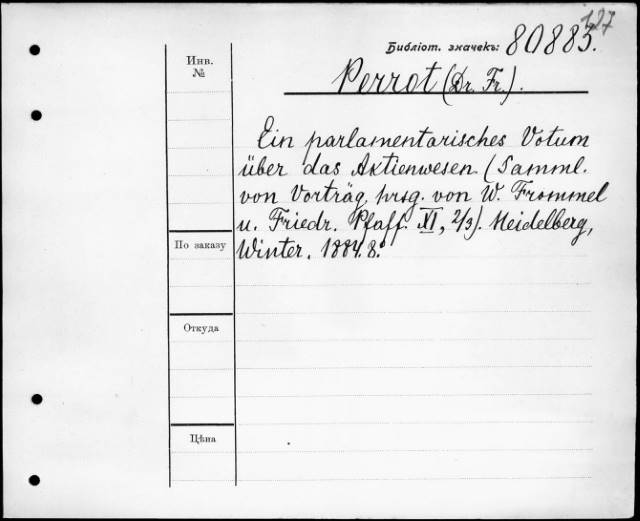 127
Библіот. значекъ: 80883.
Инв.
№
Perrot (Dr. Fr.).
Ein parlamentarisches Votum
über das Aktienwesen (Samml.
von Vorträg, hrsg. von W. Frommel
u. Friedr. Pfaff. XI, 2/3). Heidelberg,
По заказу
Winter. 1884. 8°.
Откуда
Цѣна